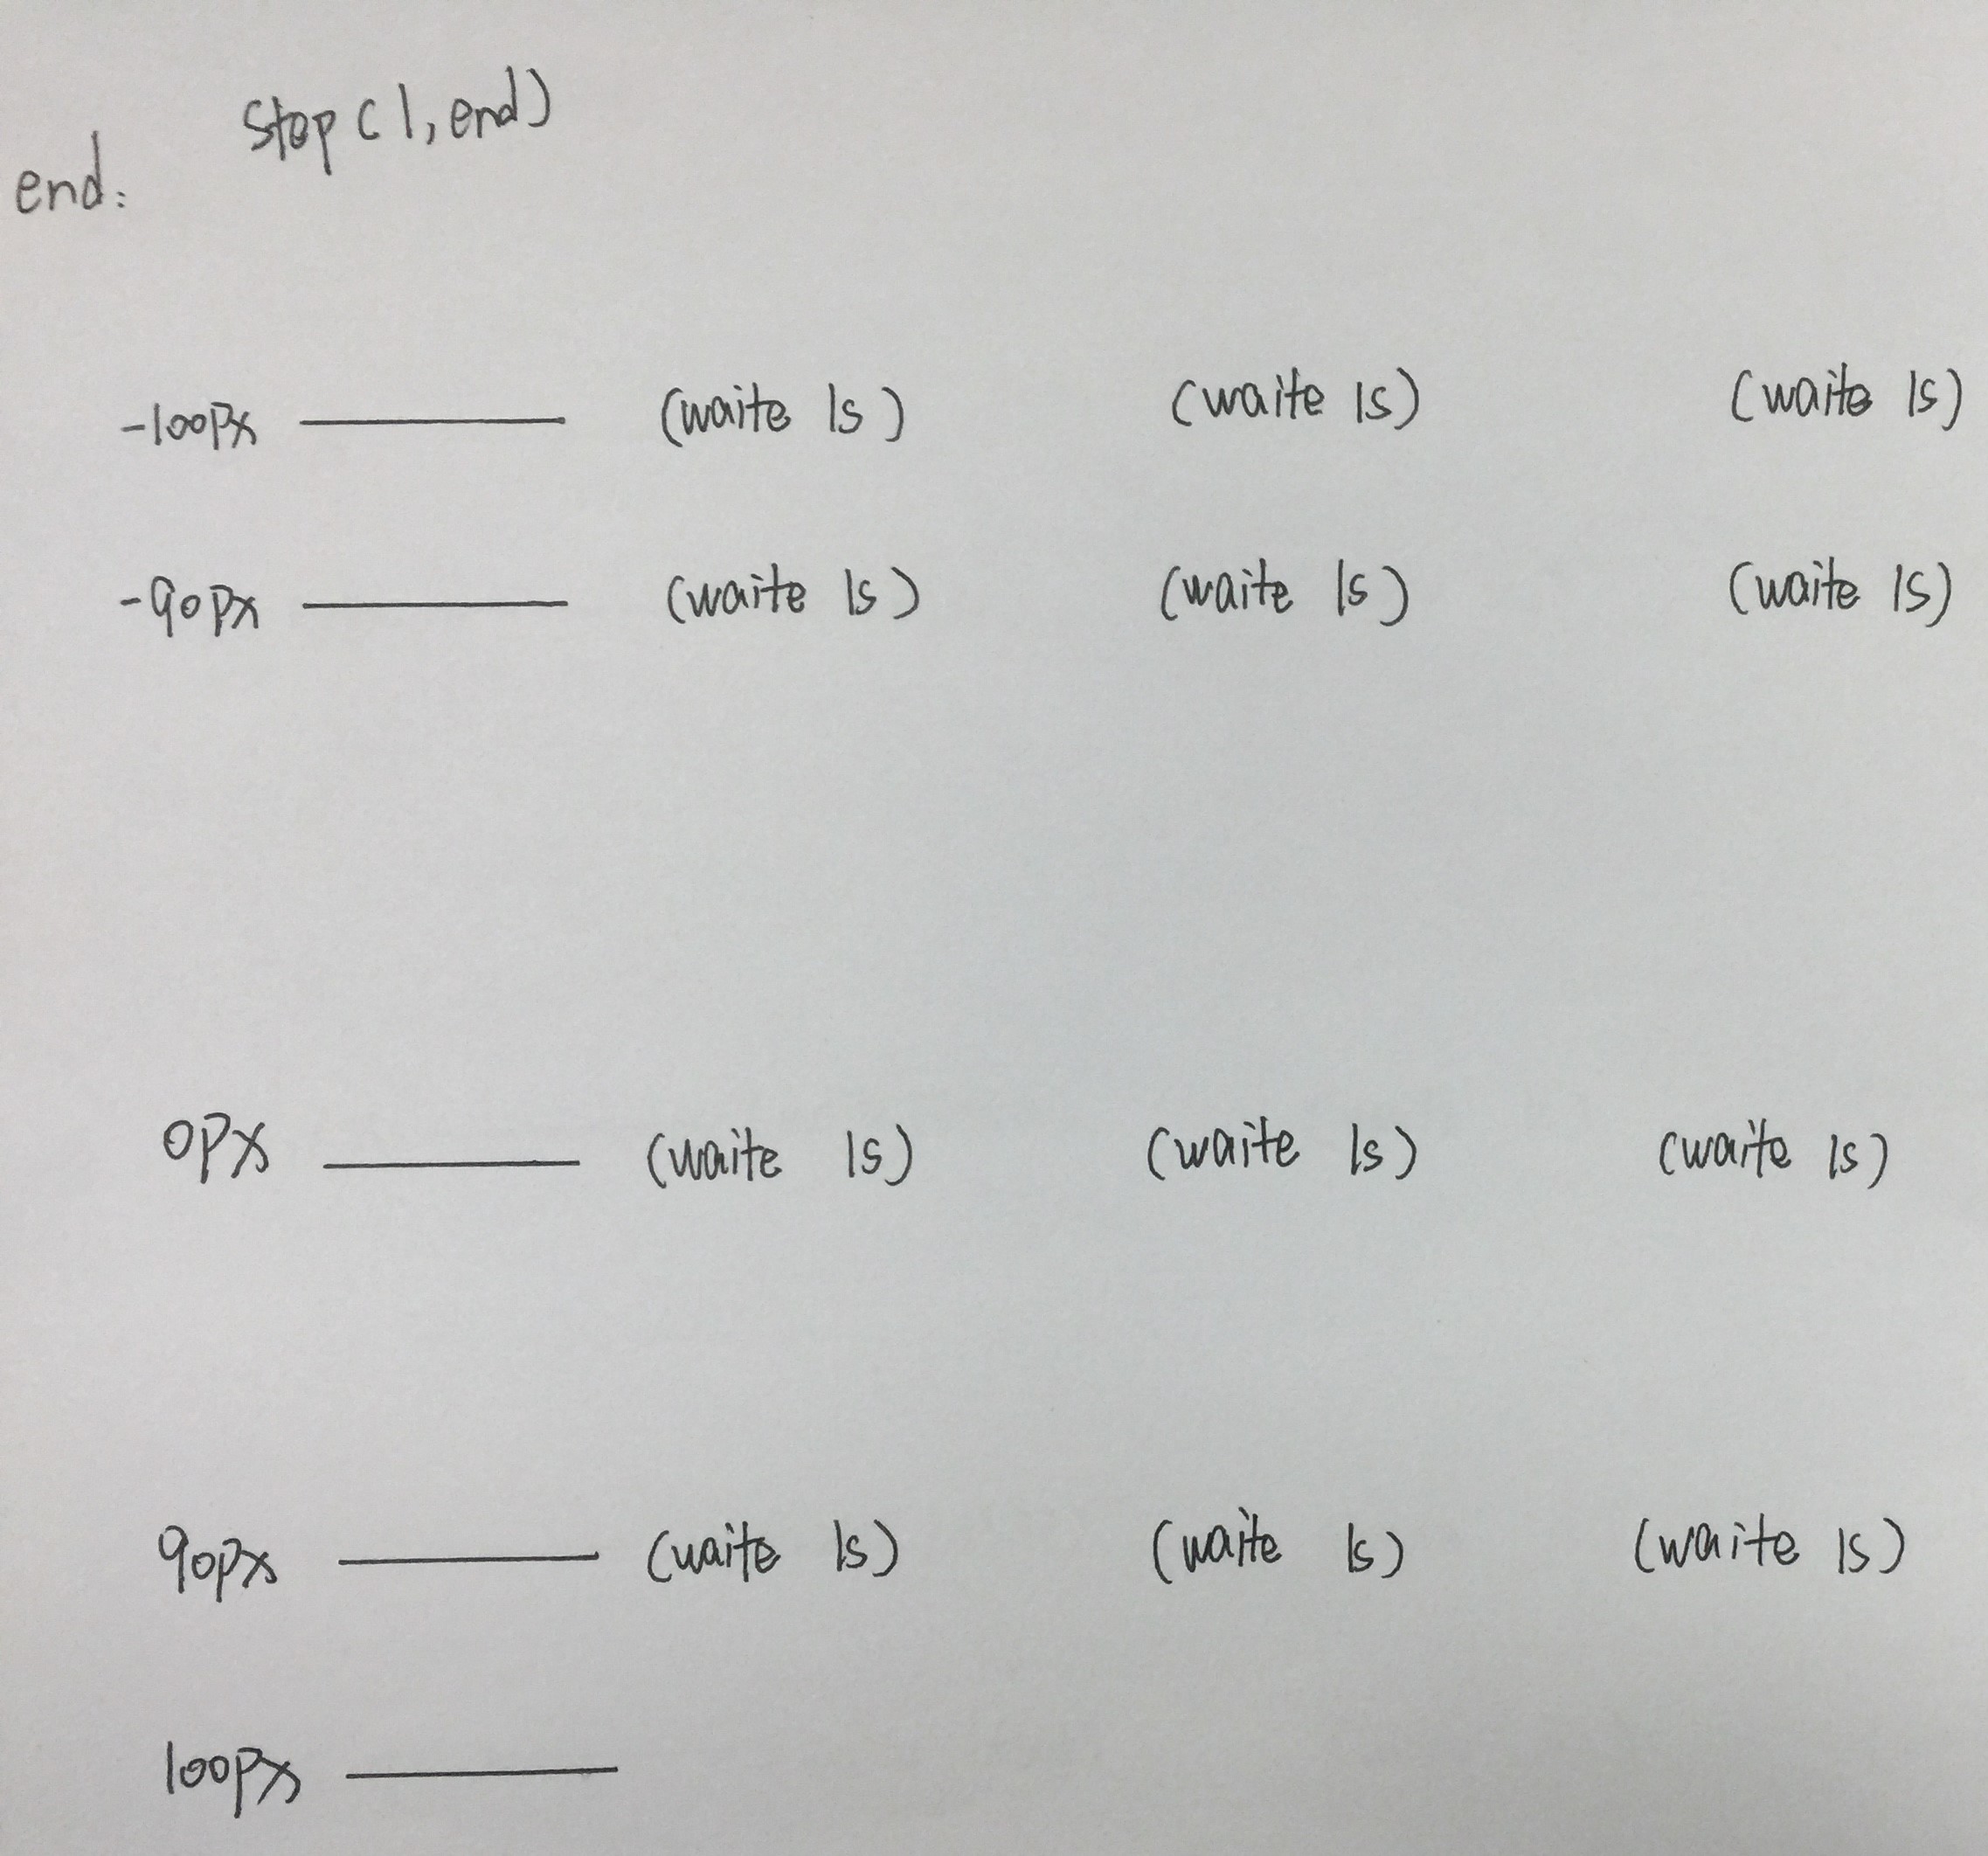 Stop(1,end)
end:
-100px —— (waite 1s) (waite 1s) (waite 1s)
-90px —— (waite 1s) (waite 1s) (waite 1s)
0px —— (waite 1s) (waite 1s) (waite 1s)
90px —— (waite 1s) (waite 1s) (waite 1s)
100px ——